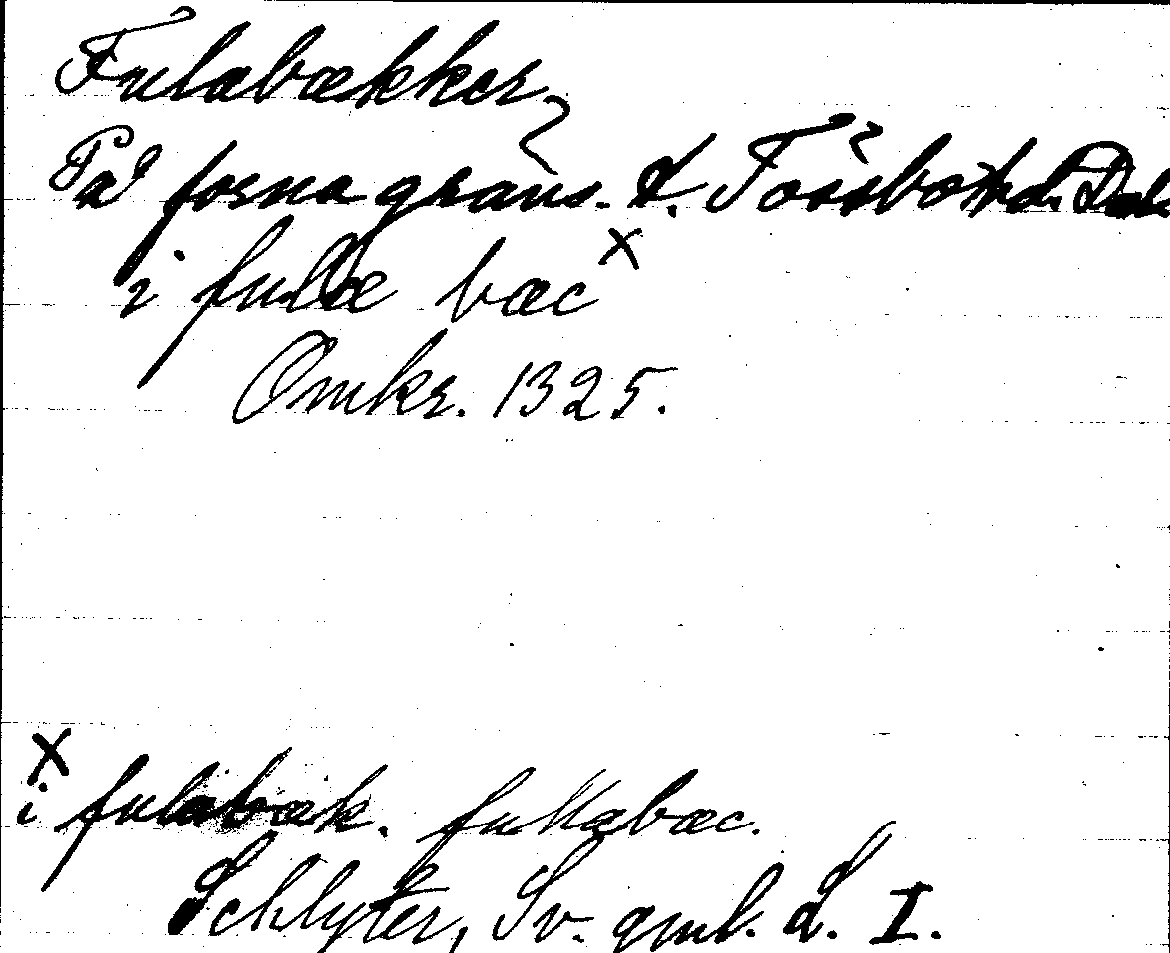 Fulabækker
På forna gräns. t. Fossbo
i fulæ bæc x
Omkr. 1325.
x
i fulabæk. fullabæc.
Schlyter, Sv. gml. L. I.